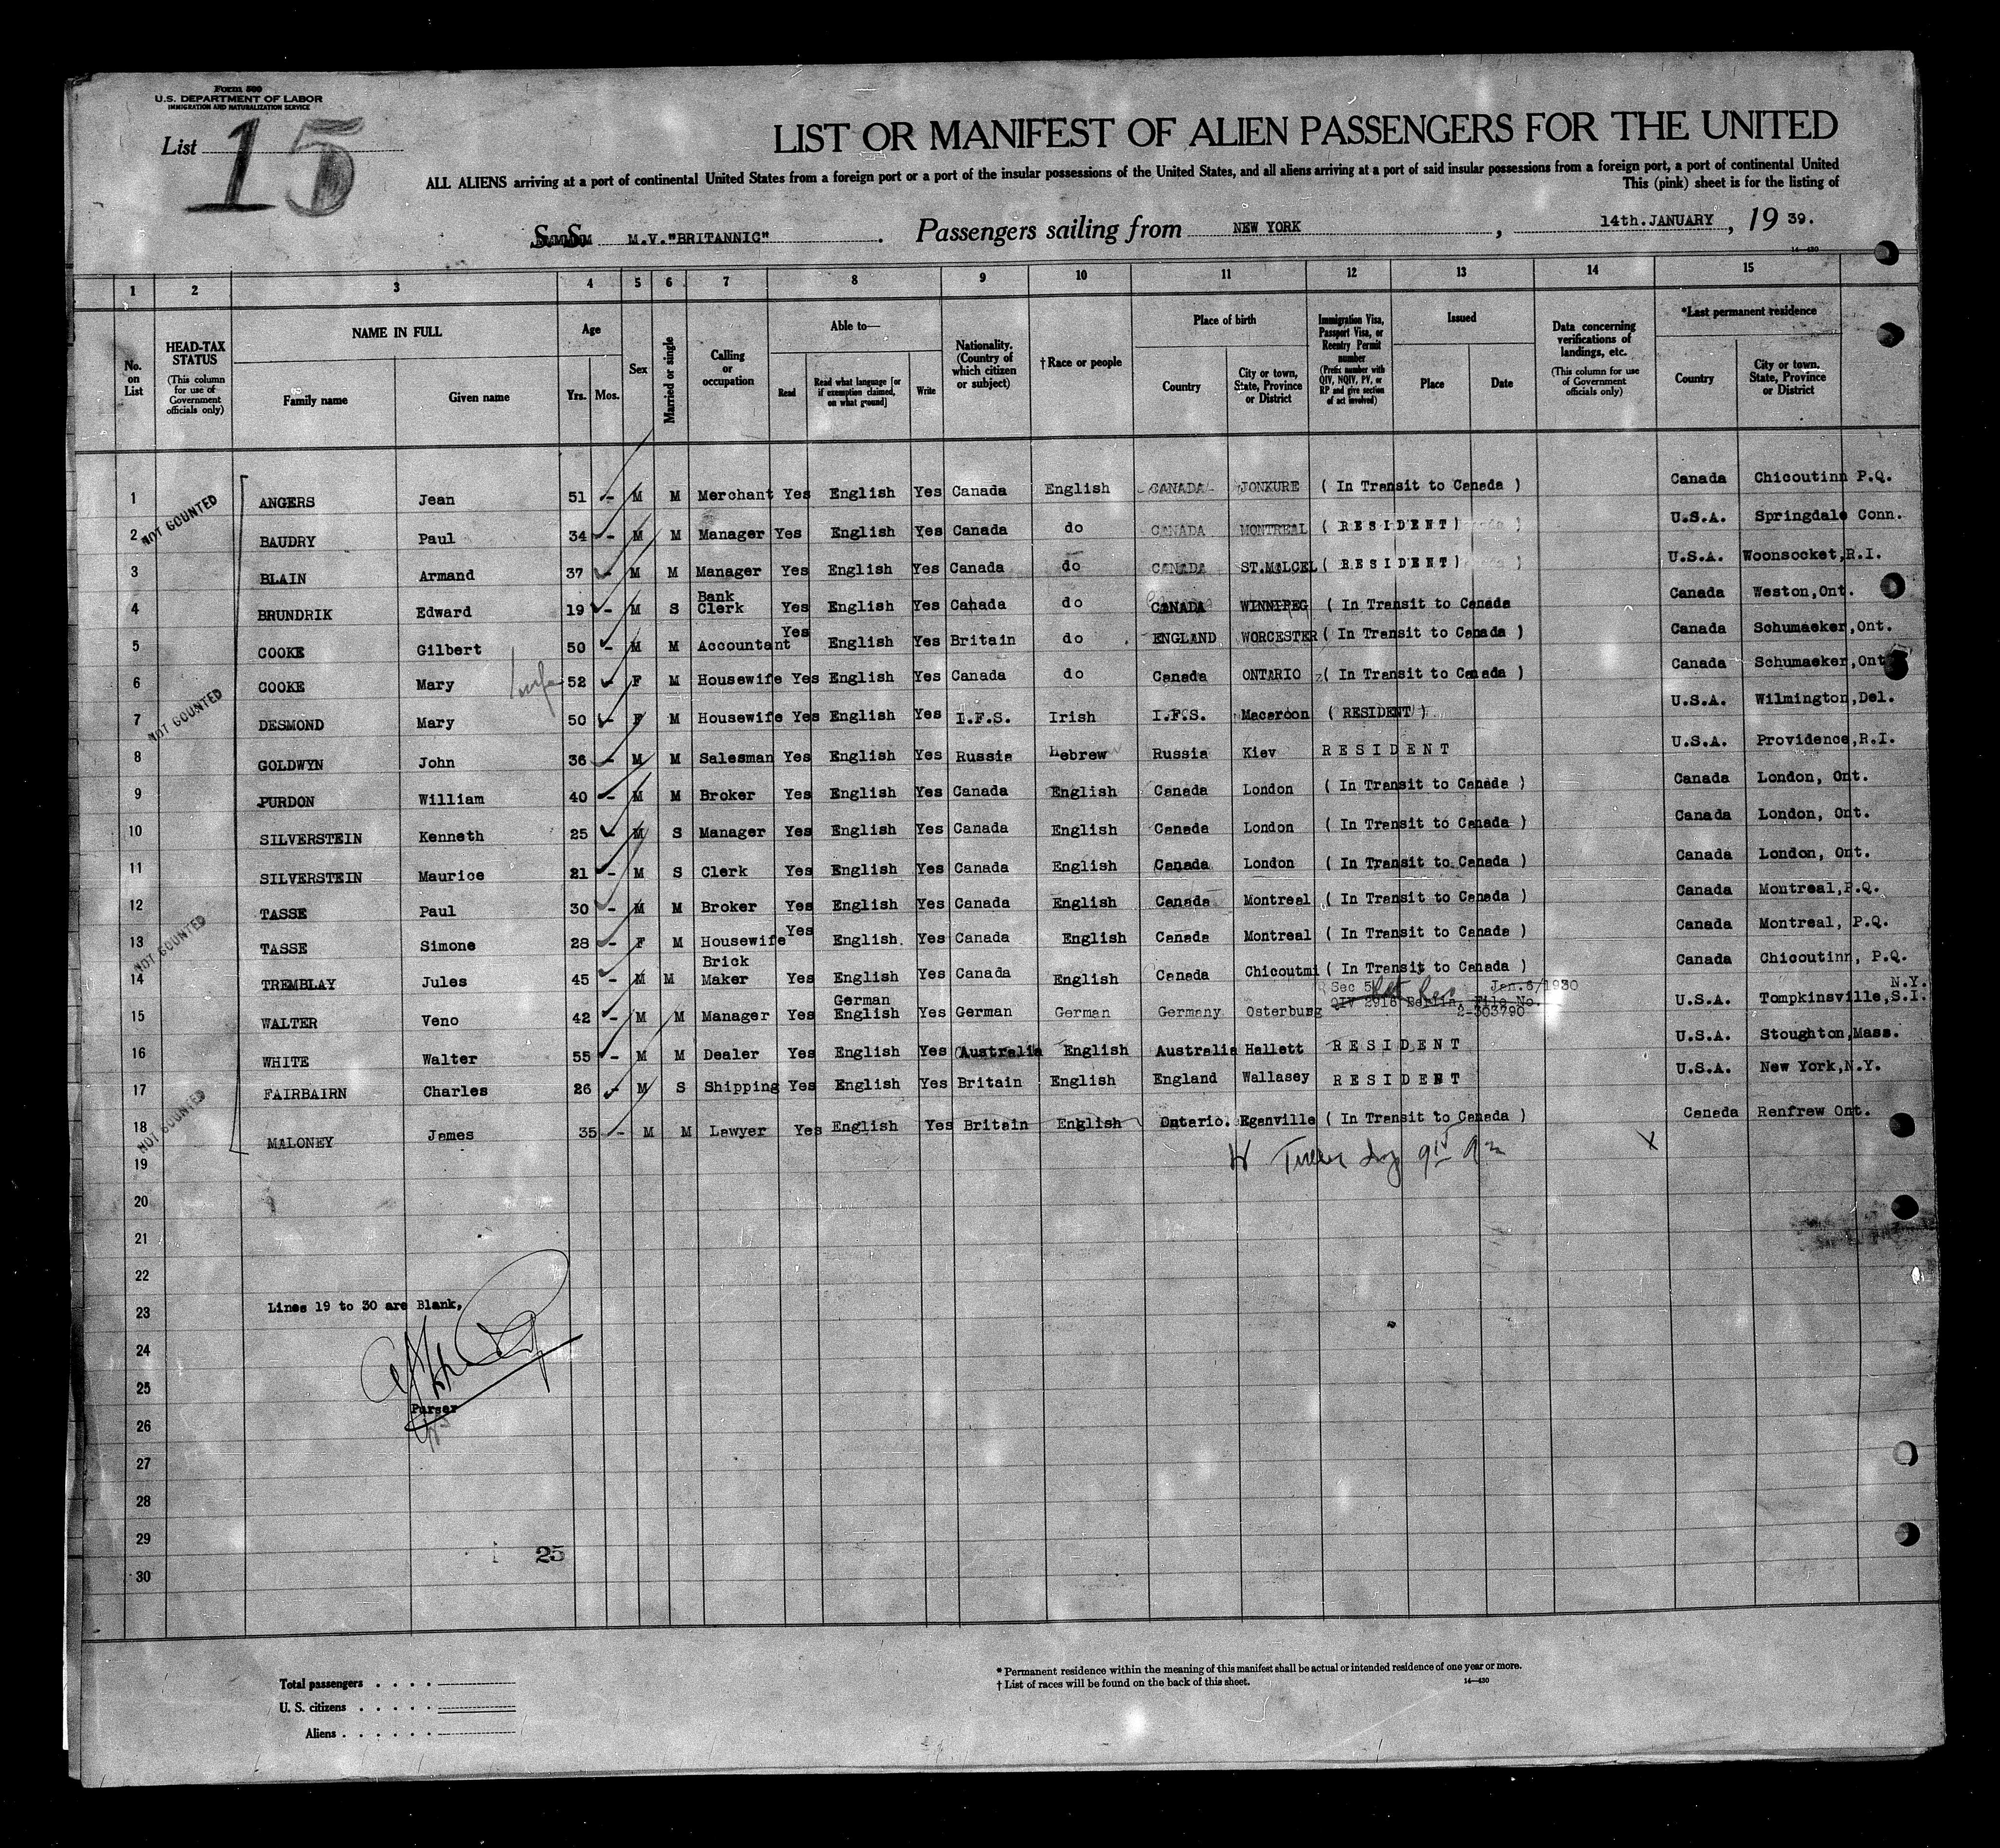 Form 500
U.S. DEPARTMENT OF LABOR
IMMIGRATION AND NATURALIZATION SERVICE
List 15
LIST OR MANIFEST OF ALIEN PASSENGERS FOR THE UNITED
ALL ALIENS arriving at a port of continental United States from a foreign port or a port of the insular possessions of the United States, and all aliens arriving at a port of said insular possessions from a foreign port, a port of continental United
This (pink) sheet is for the listing of
S. S. M.V."BRITANNIC" . Passengers sailing from NEW YORK , 14th.JANUARY , 19 39.
14—430
1 2 3 4 5 6 7 8 9 10 11 12 13 14 15
No. on List
HEAD-TAX STATUS (This column for use of Government officials only)
NAME IN FULL
Family name
Given name
Age
Yrs. Mos.
Sex
Married or single
Calling or occupation
Able to—
Read
Read what language [or if exemption claimed, on what ground]
Write
Nationality. (Country of which citizen or subject)
† Race or people
Place of birth
Country
City or town, State, Province or District
Immigration Visa, Passport Visa, or Reentry Permit number (Prefix number with QIV, NQIV, PV, or RP and give section of act involved)
Issued
Place
Date
Data concerning verifications of landings, etc. (This column for use of Government officials only)
*Last permanent residence
Country
City or town, State, Province or District
1 ANGERS Jean 51 - M M Merchant Yes English Yes Canada English CANADA JONKURE ( In Transit to Canada ) Canada Chicoutinn P.Q.
NOT COUNTED
2 BAUDRY Paul 34 - M M Manager Yes English Yes Canada do CANADA MONTREAL ( RESIDENT ) U.S.A. Springdale Conn.
3 BLAIN Armand 37 - M M Manager Yes English Yes Canada do CANADA ST.MALCEL ( RESIDENT ) U.S.A. Woonsocket,R.I.
4 BRUNDRIK Edward 19 - M S Bank Clerk Yes English Yes Canada do CANADA WINNIPEG ( In Transit to Canada Canada Weston,Ont.
5 COOKE Gilbert 50 - M M Accountant Yes English Yes Britain do ENGLAND WORCESTER ( In Transit to Canada ) Canada Schumaeker,Ont.
6 COOKE Mary wife 52 F M Housewife Yes English Yes Canada do Canada ONTARIO ( In Transit to Canada ) Canada Schumaeker,Ont
NOT COUNTED
7 DESMOND Mary 50 - F M Housewife Yes English Yes I.F.S. Irish I.F.S. Macaroon ( RESIDENT ) U.S.A. Wilmington,Del.
8 GOLDWYN John 36 - M M Salesman Yes English Yes Russia Hebrew Russia Kiev RESIDENT U.S.A. Providence,R.I.
9 PURDON William 40 - M M Broker Yes English Yes Canada English Canada London ( In Transit to Canada ) Canada London, Ont.
10 SILVERSTEIN Kenneth 25 M S Manager Yes English Yes Canada English Canada London ( In Transit to Canada ) Canada London, Ont.
11 SILVERSTEIN Maurice 21 - M S Clerk Yes English Yes Canada English Canada London ( In Transit to Canada ) Canada London, Ont.
12 TASSE Paul 30 - M M Broker Yes English Yes Canada English Canada Montreal ( In Transit to Canada ) Canada Montreal,P.Q.
NOT COUNTED
13 TASSE Simone 28 - F M Housewife Yes English. Yes Canada English Canada Montreal ( In Transit to Canada ) Canada Montreal, P.Q.
14 TREMBLAY Jules 45 - M M Brick Maker Yes English Yes Canada English Canada Chicoutmi ( In Transit to Canada ) Canada Chicoutinn, P.Q.
15 WALTER Veno 42 - M M Manager Yes German English Yes German German Germany Osterburg Sec 5 Jan.6/1930 QIV 2918 Berlin, File No. 2-303790 U.S.A. Tompkinsville,S.I. N.Y.
16 WHITE Walter 55 - M M Dealer Yes English Yes Australia English Australia Hallett RESIDENT U.S.A. Stoughton,Mass.
17 FAIRBAIRN Charles 26 - M S Shipping Yes English Yes Britain English England Wallasey RESIDENT U.S.A. New York,N.Y.
NOT COUNTED
18 MALONEY James 35 - M M Lawyer Yes English Yes Britain English Ontario. Eganville ( In Transit to Canada ) Canada Renfrew Ont.
19 X
20
21
22
23 Lines 19 to 30 are Blank,
24
25
Purser
26
27
28
29
25
30
Total passengers
U. S. citizens
Aliens
* Permanent residence within the meaning of this manifest shall be actual or intended residence of one year or more.
† List of races will be found on the back of this sheet.
14—430